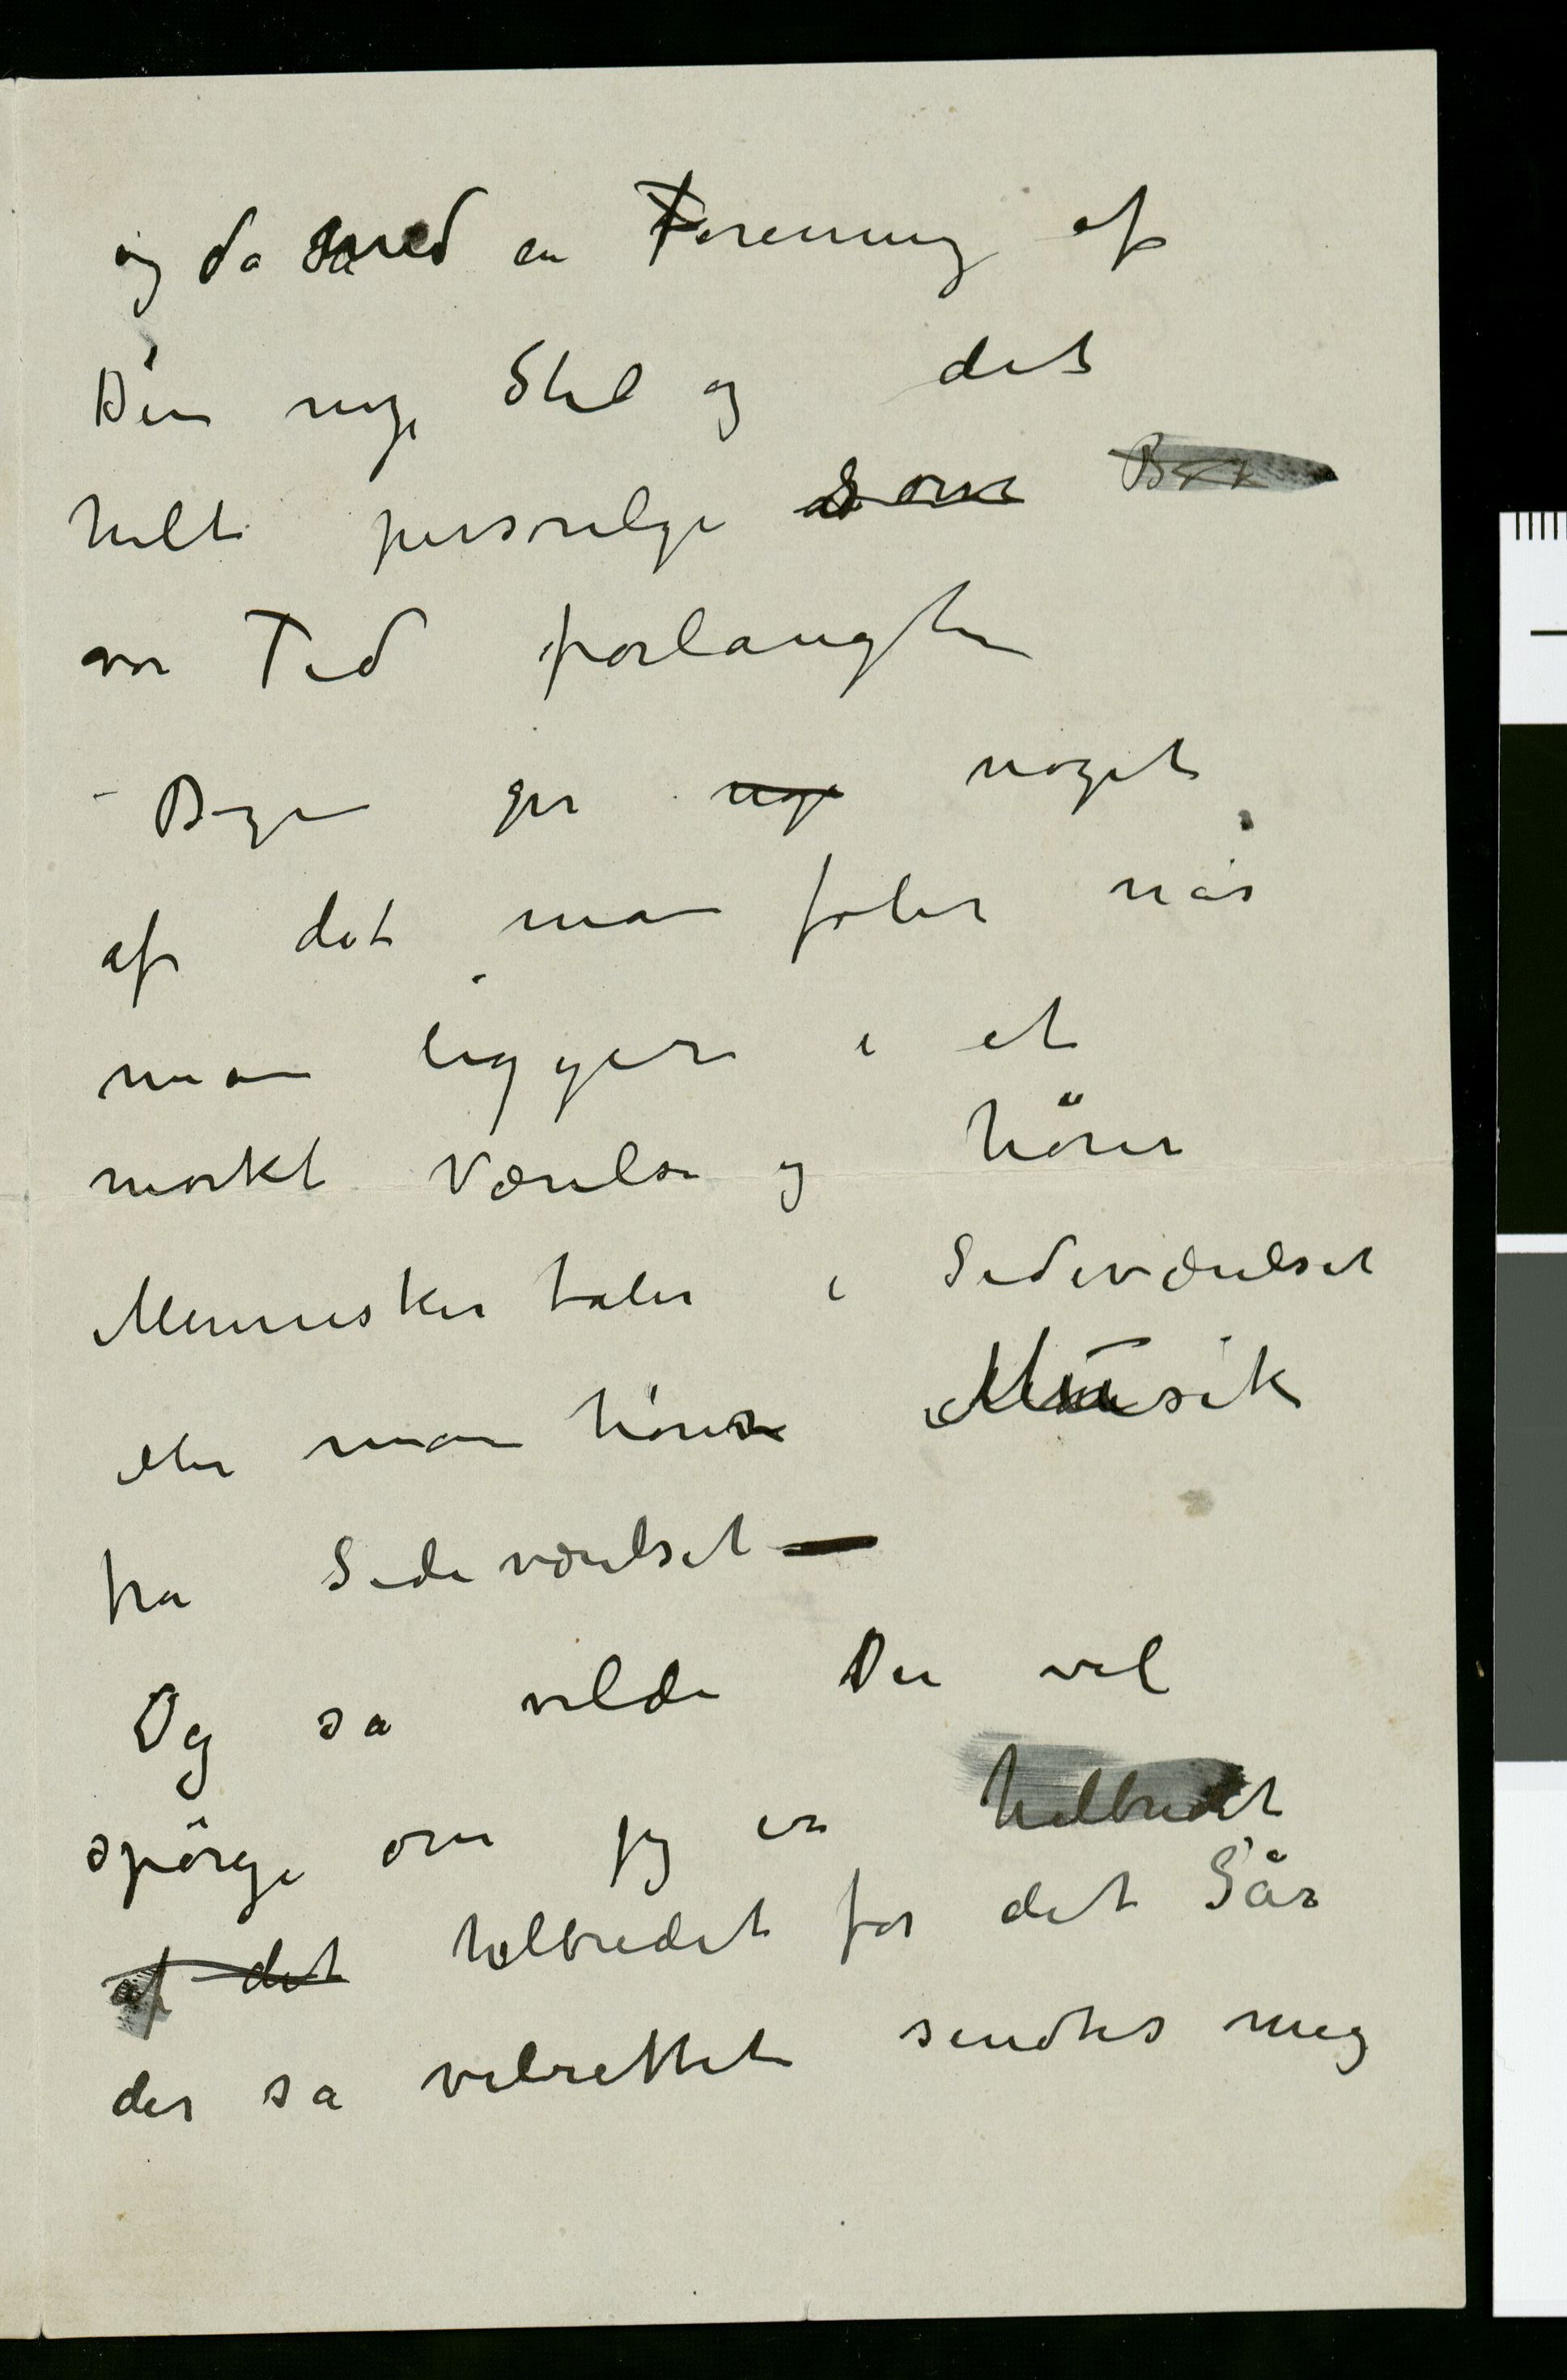 og da med en Forening af
Din nye Stil og det
helt personlige som
vor Tid forlangte
– Bogen ger nye noget
af det man føler når
man ligger i et
mørkt Værelse og hörer
Mennesker taler i Sideværelset
eller man hører Musik
fra Sideværelset –
Og så vilde Du vel
spörge om jeg er helbredet
af det helbredet for det Sår
der så velrettet sendtes mig